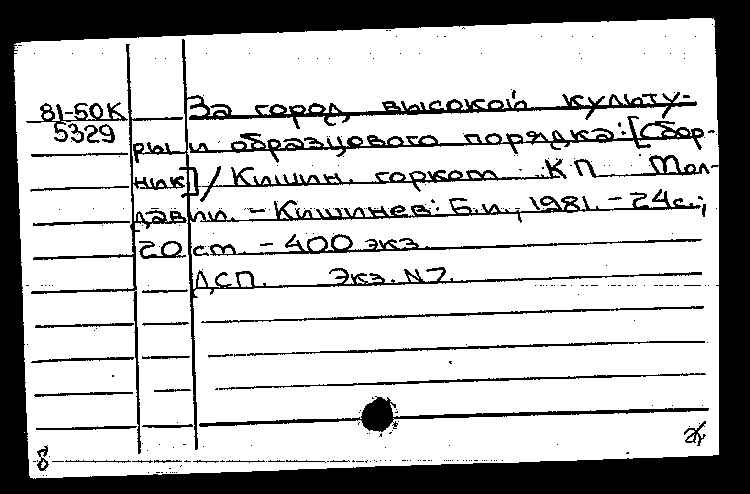 81-50К За город высокой культу-
5329 ры и образцового порядка: [Сбор-
ник] / Кишин. горком КП Мол-
давии. - Кишинев: Б.и., 1981. - 24с.;
20 см. - 400 экз.
ДСП. Экз. N7.
8